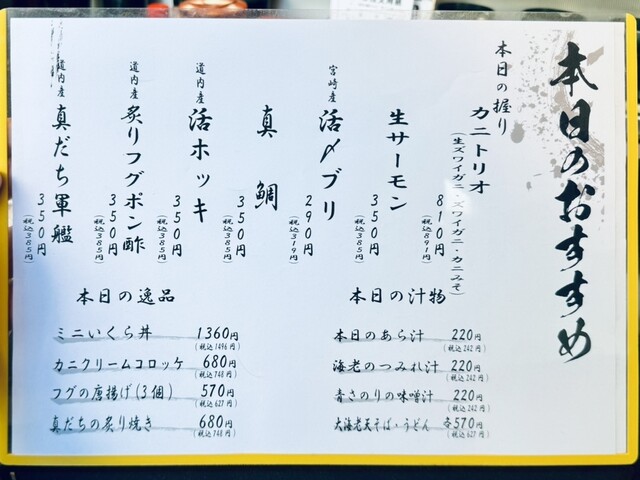 本日のおすすめ
本日の握り
カニトリオ
(生ズワイガニ・ズワイガニ・カニみそ)
810円
(税込891円)
生サーモン
350円
(税込385円)
宮崎産
活〆ブリ
290円
(税込319円)
真鯛
350円
(税込385円)
道内産
活ホッキ
350円
(税込385円)
道内産
炙りフグポン酢
350円
(税込385円)
道内産
真だち軍艦
350円
(税込385円)
本日の逸品
ミニいくら丼 1360円
(税込1496円)
カニクリームコロッケ 680円
(税込748円)
フグの唐揚げ(3個) 570円
(税込627円)
真だちの炙り焼き 680円
(税込748円)
本日の汁物
本日のあら汁 220円
(税込242円)
海老のつみれ汁 220円
(税込242円)
青さのりの味噌汁 220円
(税込242円)
大海老天そば・うどん 各570円
(税込627円)